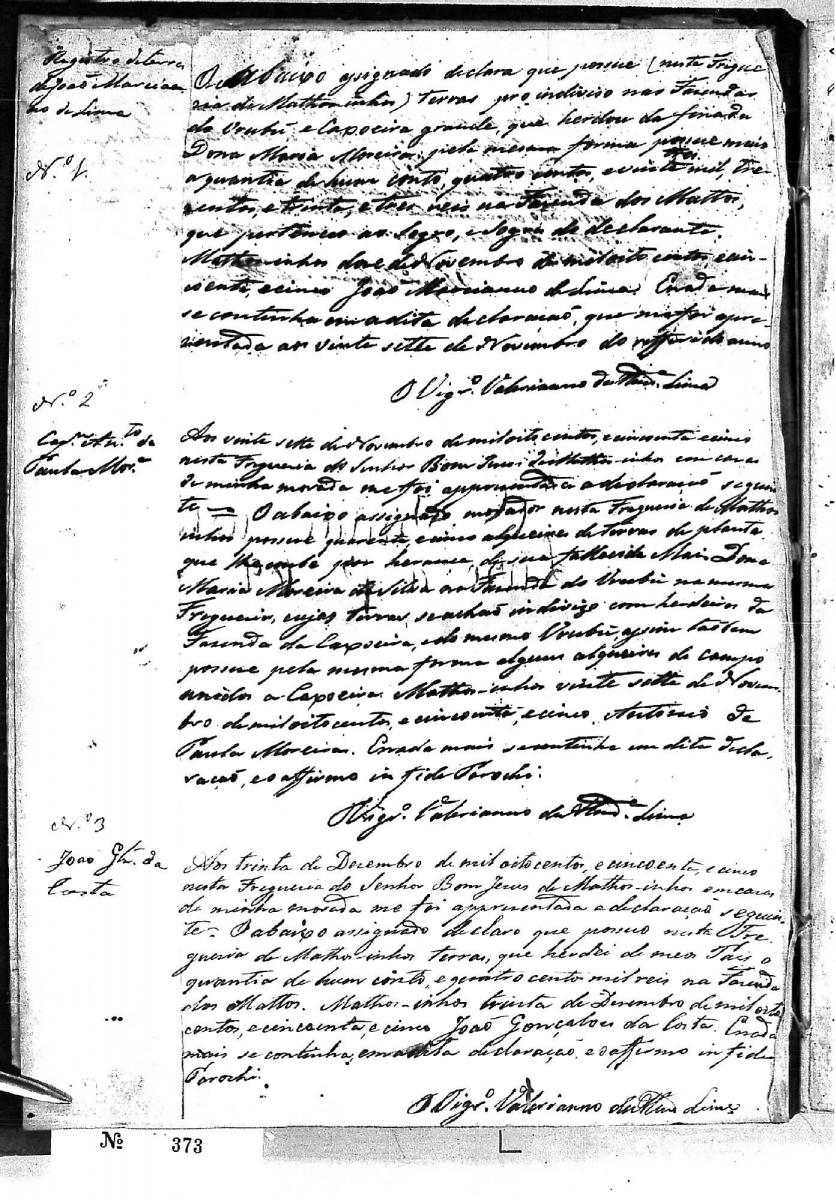 Registro de terras
de João Marcian-
no de Lima
N.º 1.
O Abaixo assignado declara que possue (nesta Frigue
zia de Mathosinhos) terras pro indiviso nas Fazendas
do Urubú, e Capoeira grande, que herdou da finada
Dona Maria Moreira; pela mesma forma possue mais
a quantia de hum conto, quatro centos, e vinte mil, tre
centos, e trinta, e tres reis na Fazenda dos Mattos,
que pertenceo ao Sogro, e Sogra do declarante.
Mathosinhos doze de Novembro de mil oito centos e cin-
coenta, e cinco João Marcianno de Lima. E nada mais
se continha em a dita declaração, que me foi apre-
sentada aos vinte sette de Novembro do refferido anno
O Vigr.º Valerianno da Lima
N.º 2º
Cap.m Ant.to de
Paula Mor.a
Aos vinte sette de Novembro de mil oito centos, e cincoenta e cinco
nesta Fregueria do Senhor Bom Jesus de Mathosinhos em casa
de minha morada me foi appresentada a declaração seguin
te = O abaixo assignado morador nesta Fregueria de Mathos
inhos possue quarenta, e cinco alqueires de terras de planta
que lhe coube por herança de sua fallecida Mai Dona
Maria Moreira da Silva na Fazenda do Urubú na mesma
Fregueria, cujas terras se achão indivizo com herdeiros da
Fazenda da Capoeira, e do mesmo Urubú, assim tao bem
possue pela mesma forma alguns alqueires de campo
unidos a Capoeira. Mathos-inhos vinte sette de Novem
bro de mil oito centos, e cincoenta, e cinco. Antonio de
Paula Moreira. E nada mais se continha em dita decla-
ração, e o affirmo in fide Parochi.
O Vigr.º Valerianno da Lima
N.º 3
João Glz. da
Costa
Aos trinta de Dezembro de mil oito centos, e cincoenta, e cinco
nesta Fregueria do Senhor Bom Jesus de Mathos-inhos em casa
de minha morada me foi appresentada a declaração seguin
te = O abaixo assignado declaro que possuo nesta Fre
gueria de Mathos-inhos terras, que herdei de meos Pais a
quantia de hum conto, e quatro centos mil reis na Fazenda
dos Mattos. Mathos-inhos trinta de Dezembro de mil oito
centos, e cincoenta, e cinco João Gonçalves da Costa. E nada
mais se continha, em a dita declaração, e o affirmo in fide
Parochi.
O Vigr.º Valerianno da Lima
Nº 373